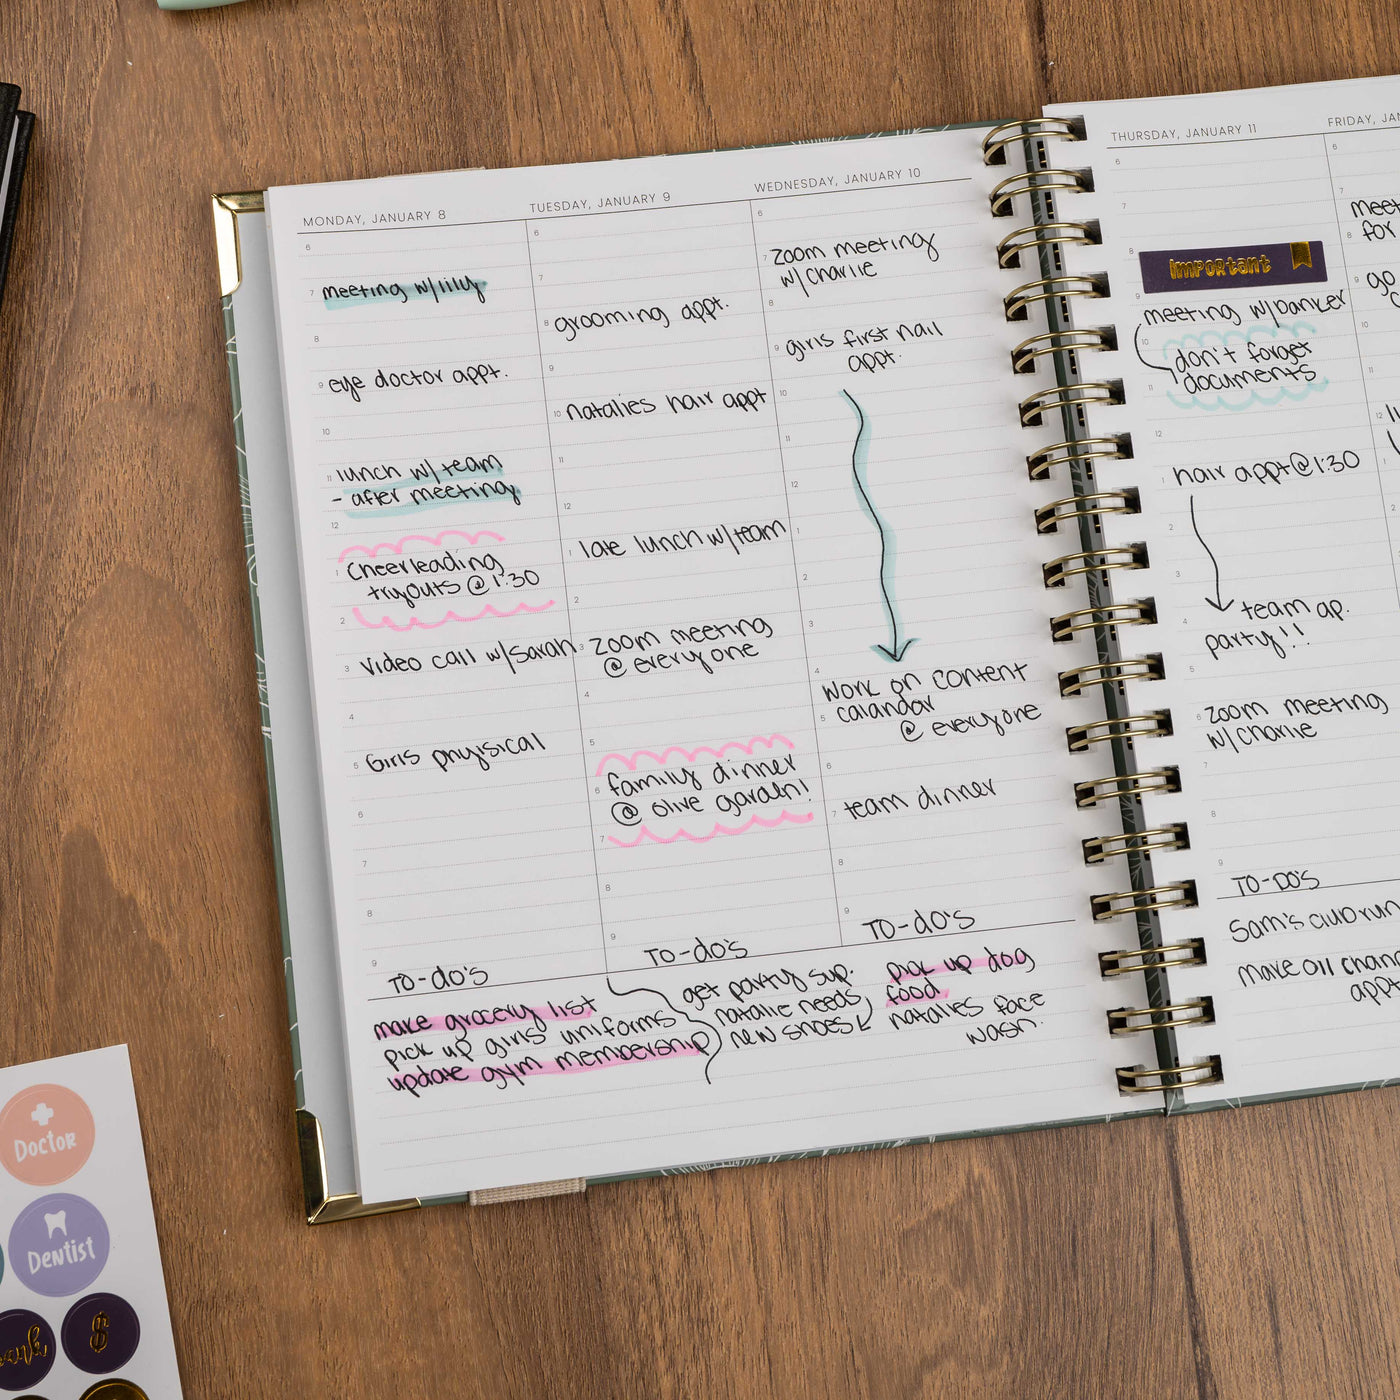 MONDAY, JANUARY 8
6
7 meeting w/lily
8
9 eye doctor appt.
10
11 lunch w/ team
- after meeting
12
Cheerleading
1 tryouts @ 1:30
2
3 video call w/Sarah
4
5 Girls phyisical
6
7
8
9
TO-do's
make grocery list
pick up girls' uniforms
update gym membership
TUESDAY, JANUARY 9
6
7
8 grooming appt.
9
10 natalies hair appt
11
12
1 late lunch w/team
2
3 Zoom meeting
@ everyone
4
5
family dinner
6 @ olive garden!
7
8
9
TO-do's
get party sup.
natalie needs
new shoes
WEDNESDAY, JANUARY 10
6
7 zoom meeting
w/ charlie
8
9 girls first nail
appt.
10
11
12
1
2
3
4
work on content
5 calandar
@ everyone
6
7 team dinner
8
9
TO-do's
pick up dog
food
natalies face
wash.
THURSDAY, JANUARY 11
6
7
8
Important
9
meeting w/banker
10
don't forget
11 documents
12
1 hair appt@1:30
2
3
4 team ap.
party!!
5
6 zoom meeting
w/charlie
7
8
9
TO-DO'S
Sam's club run
make oil chan
appt
FRIDAY, JAN
6
7
meet
8 for
9 go
10
11
12
1
2
Doctor
Dentist
$